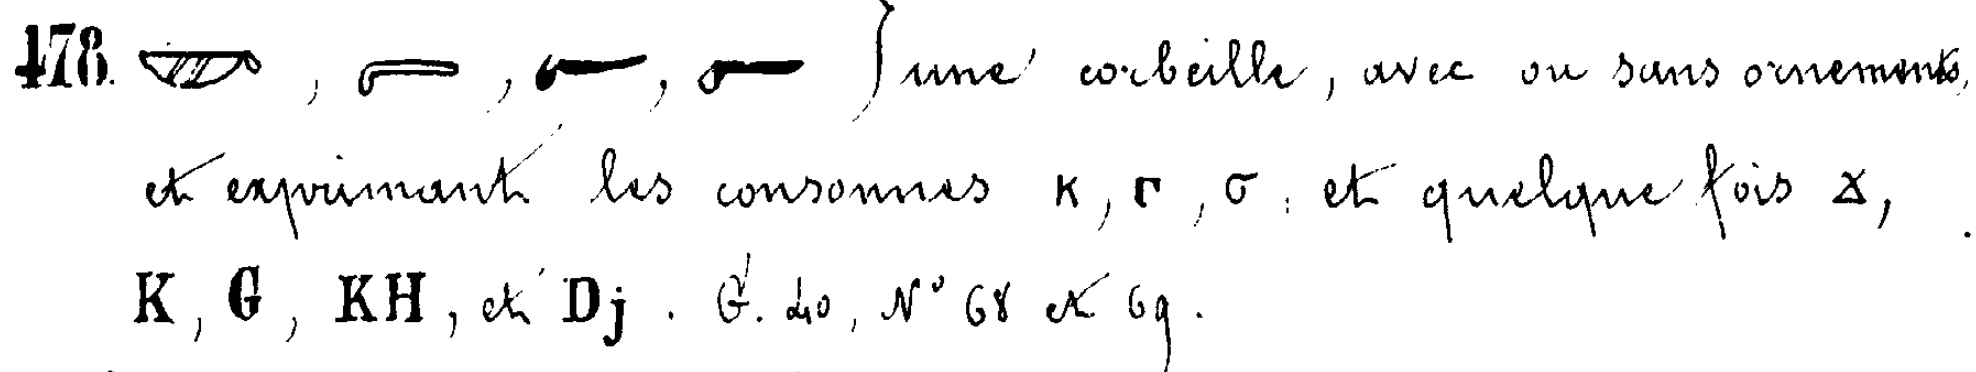 478. 𓎡 , , , } une corbeille, avec ou sans ornements,
et exprimant les consonnes ⲕ, ⲅ, ϭ, et quelque fois ϫ,
K, G, KH, et Dj. G. 40, N° 68 et 69.